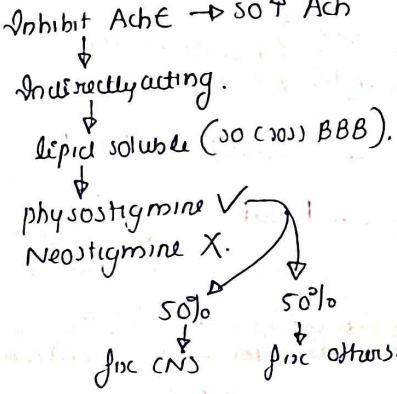 Inhibit AchE → so ↑ Ach
↓
Indirectly acting.
↓
lipid soluble (so cross BBB).
↓
physostigmine ✓
Neostigmine X.
50% 50%
↓ ↓
for CNS for others.